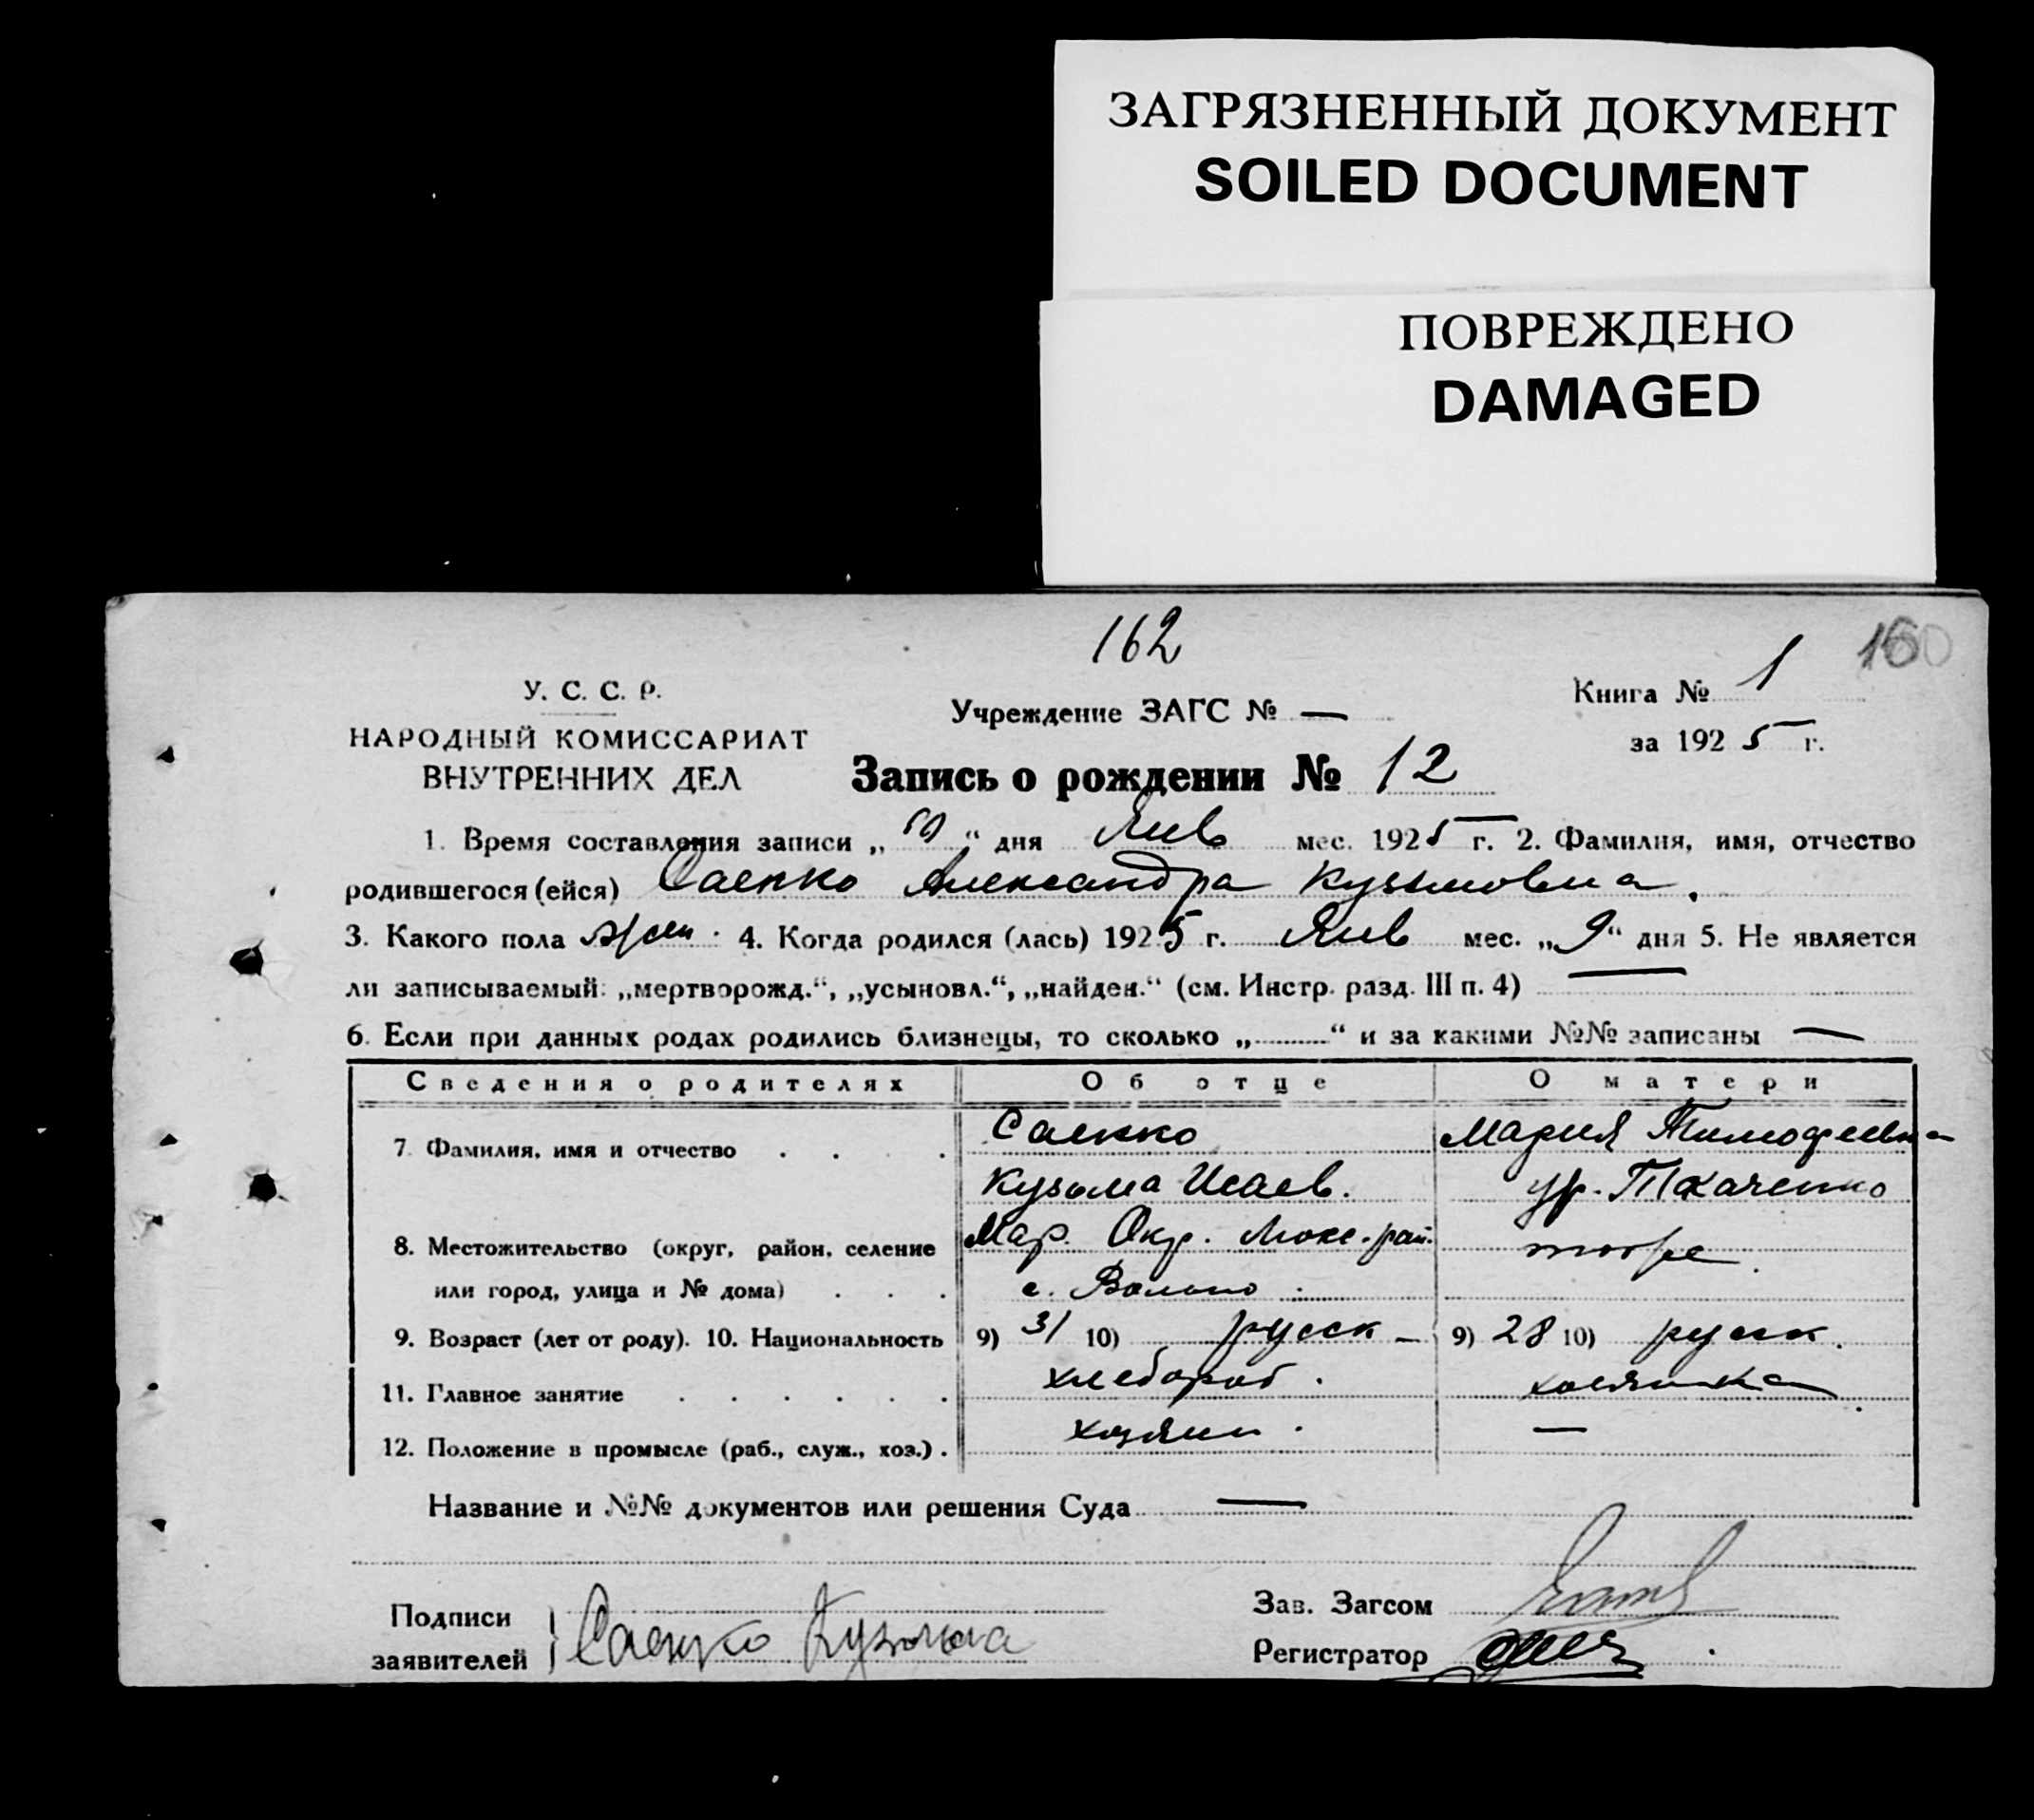 ЗАГРЯЗНЕННЫЙ ДОКУМЕНТ
SOILED DOCUMENT
ПОВРЕЖДЕНО
DAMAGED
162
160
У. С. С. Р.
НАРОДНЫЙ КОМИССАРИАТ
ВНУТРЕННИХ ДЕЛ
Учреждение ЗАГС № —
Книга № 1
за 1925 г.
Запись о рождении № 12
1. Время составления записи „ “ дня Янв мес. 1925 г. 2. Фамилия, имя, отчество
родившегося (ейся) Саенко Александра Кузьмовна.
3. Какого пола жен. 4. Когда родился (лась) 1925 г. Янв мес. „9“ дня 5. Не является
ли записываемый: „мертворожд.“, „усыновл.“, „найден.“ (см. Инстр. разд. III п. 4) —
6. Если при данных родах родились близнецы, то сколько „..........“ и за какими №№ записаны —
Сведения о родителях Об отце О матери
7. Фамилия, имя и отчество . . . . Саенко Мария Тимофеевна
Кузьма Исаев. ур. Ткаченко
8. Местожительство (округ, район, селение Мар. Окр. Люкс. рай. тоже
или город, улица и № дома) . . . с.
9. Возраст (лет от роду). 10. Национальность 9) 31 10) русск – 9) 28 10) русск.
11. Главное занятие . . . . . . хлебороб. хозяйка
12. Положение в промысле (раб., служ., хоз.) . хозяин. —
Название и №№ документов или решения Суда —
Подписи
заявителей Саенко Кузьма
Зав. Загсом
Регистратор